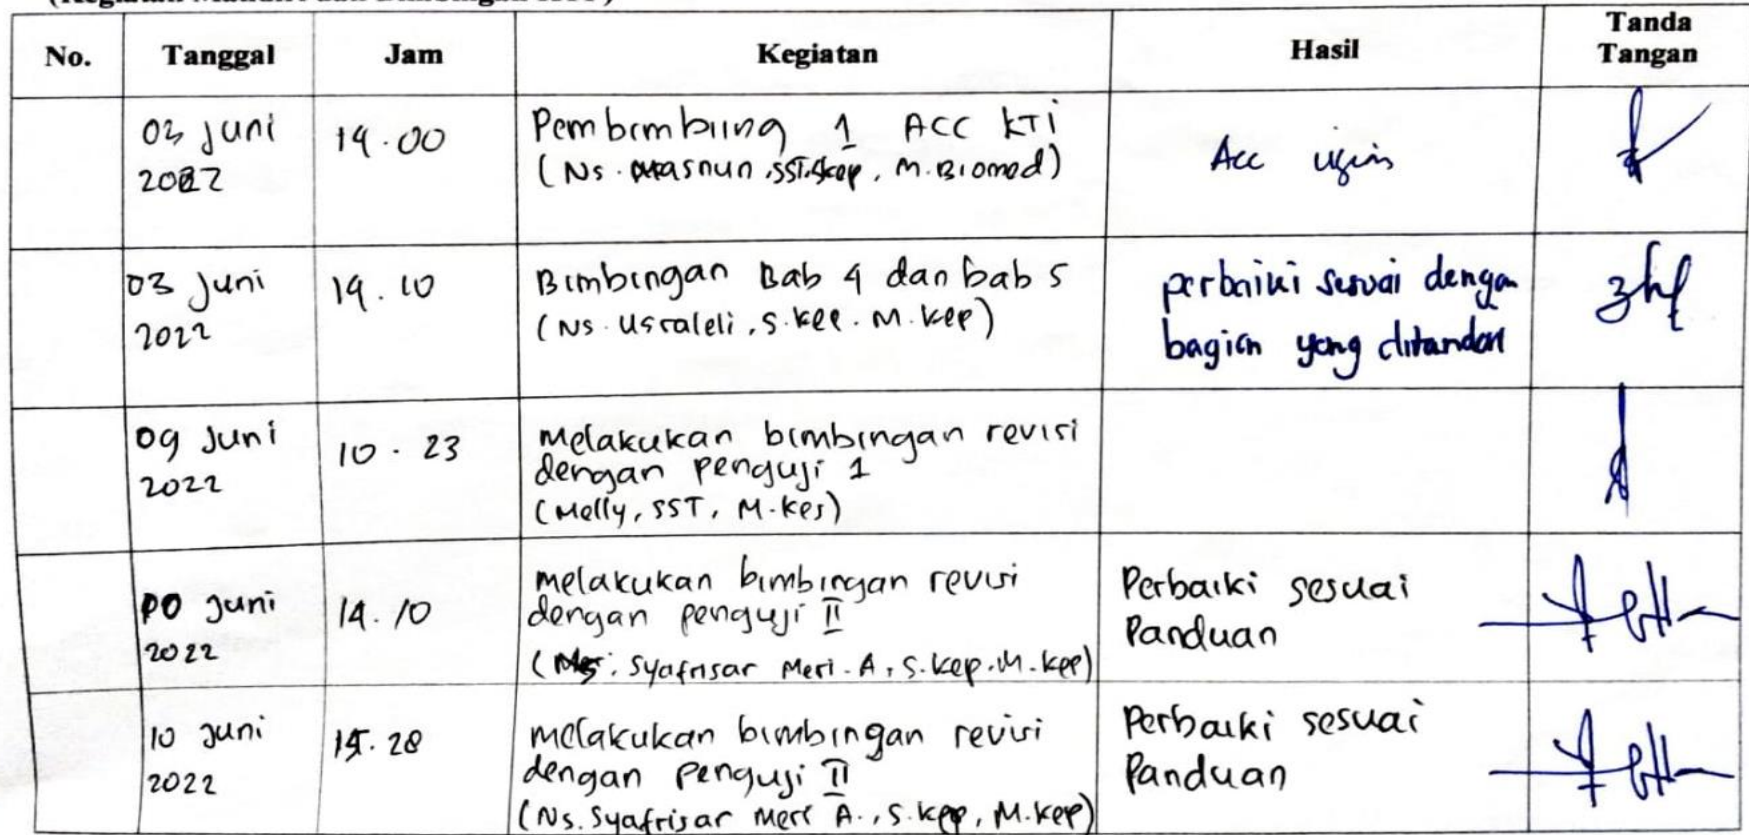 No. Tanggal Jam Kegiatan Hasil Tanda Tangan
03 Juni 2022 14.00 Pembimbing 1 ACC KTI
(Ns. Masnun, SST, S.kep, M.Biomed) Acc ujian
03 Juni 2022 14.10 Bimbingan Bab 4 dan bab 5
(Ns. Usraleli, S.kep. M.kep) perbaiki sesuai dengan
bagian yang ditandai
09 Juni 2022 10.23 melakukan bimbingan revisi
dengan penguji 1
(Melly, SST, M.kes)
Juni 2022 14.10 melakukan bimbingan revisi
dengan penguji II
(Syafrisar Meri.A, S.kep.M.kep) Perbaiki sesuai
Panduan
10 Juni 2022 28 melakukan bimbingan revisi
dengan penguji II
(Ns. Syafrisar Meri A., S.kep, M.kep) Perbaiki sesuai
Panduan